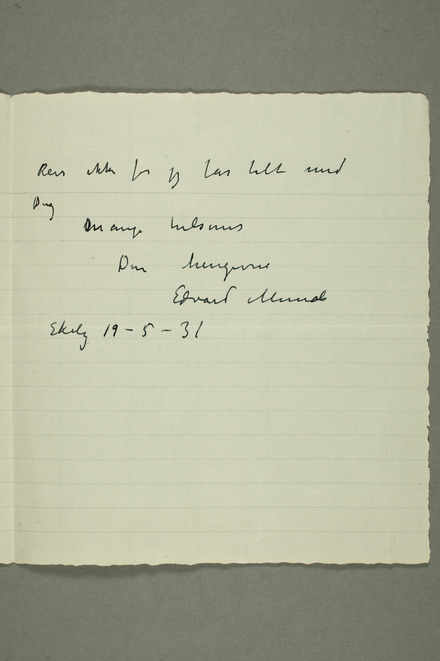 Reis ikke før jeg har talt med
Dig
Mange hilsener
Din hengivne
Edvard Munch
Ekely 19–5–31